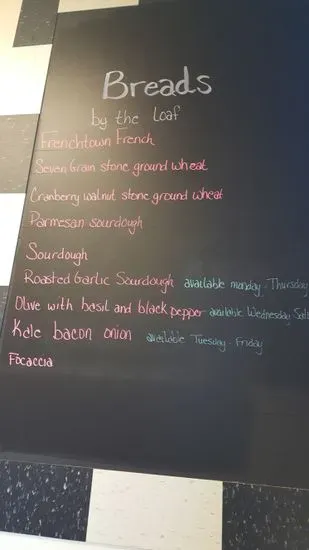 Breads
by the loaf
Frenchtown French
Seven Grain stone ground wheat
Cranberry walnut stone ground wheat
Parmesan sourdough
Sourdough
Roasted Garlic Sourdough available monday - Thursday
Olive with basil and black pepper available Wednesday
Kale bacon onion available Tuesday - Friday
Focaccia